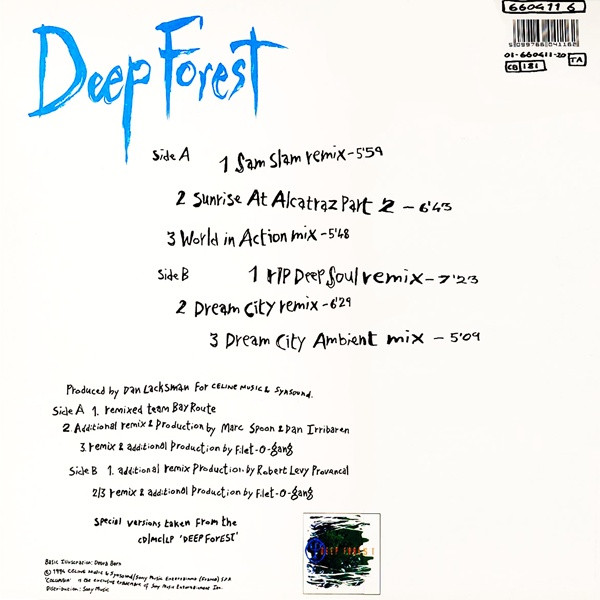 660411 6
5 099766 041162
01-660411-20
CB 181
TA
Deep Forest
Side A
1 Sam Slam remix - 5'59
2 Sunrise At Alcatraz Part 2 - 6'43
3 World in Action mix - 5'48
Side B
1 RIP Deep Soul remix - 7'23
2 Dream City remix - 6'29
3 Dream City Ambient mix - 5'09
Produced by Dan Lacksman For CELINE MUSIC & SYNSOUND.
Side A 1. remixed team Bay Route
2. Additional remix & Production by Marc Spoon & Dan Irribaren
3. remix & additional Production by Filet-O-gang
Side B 1. additional remix Production by Robert Levy Provencal
2/3 remix & additional Production by Filet-O-gang
Special versions taken from the
CD/MC/LP 'DEEP FOREST'
DEEP FOREST
Basic Illustration: Debra Bern
© 1994 CELINE Music & Synsound/Sony Music Entertainment (France) S.P.A.
'COLUMBIA' is the exclusive trademark of Sony Music Entertainment Inc.
Distribution: Sony Music